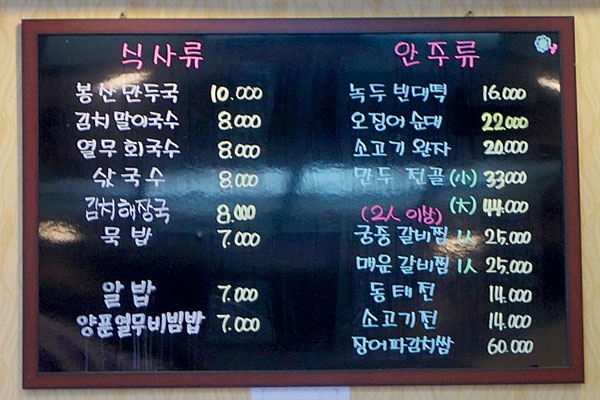 식사류
봉산만두국 10.000
김치말이국수 8.000
열무회국수 8.000
삯국수 8.000
김치해장국 8.000
묵밥 7.000
알밥 7.000
양푼열무비빔밥 7.000
안주류
녹두빈대떡 16.000
오징어순대 22.000
소고기완자 20.000
만두전골 (小) 33.000
(大) 44.000
(2人 이상)
궁중갈비찜 1人 25.000
매운갈비찜 1人 25.000
동태전 14.000
소고기전 14.000
장어파김치쌈 60.000